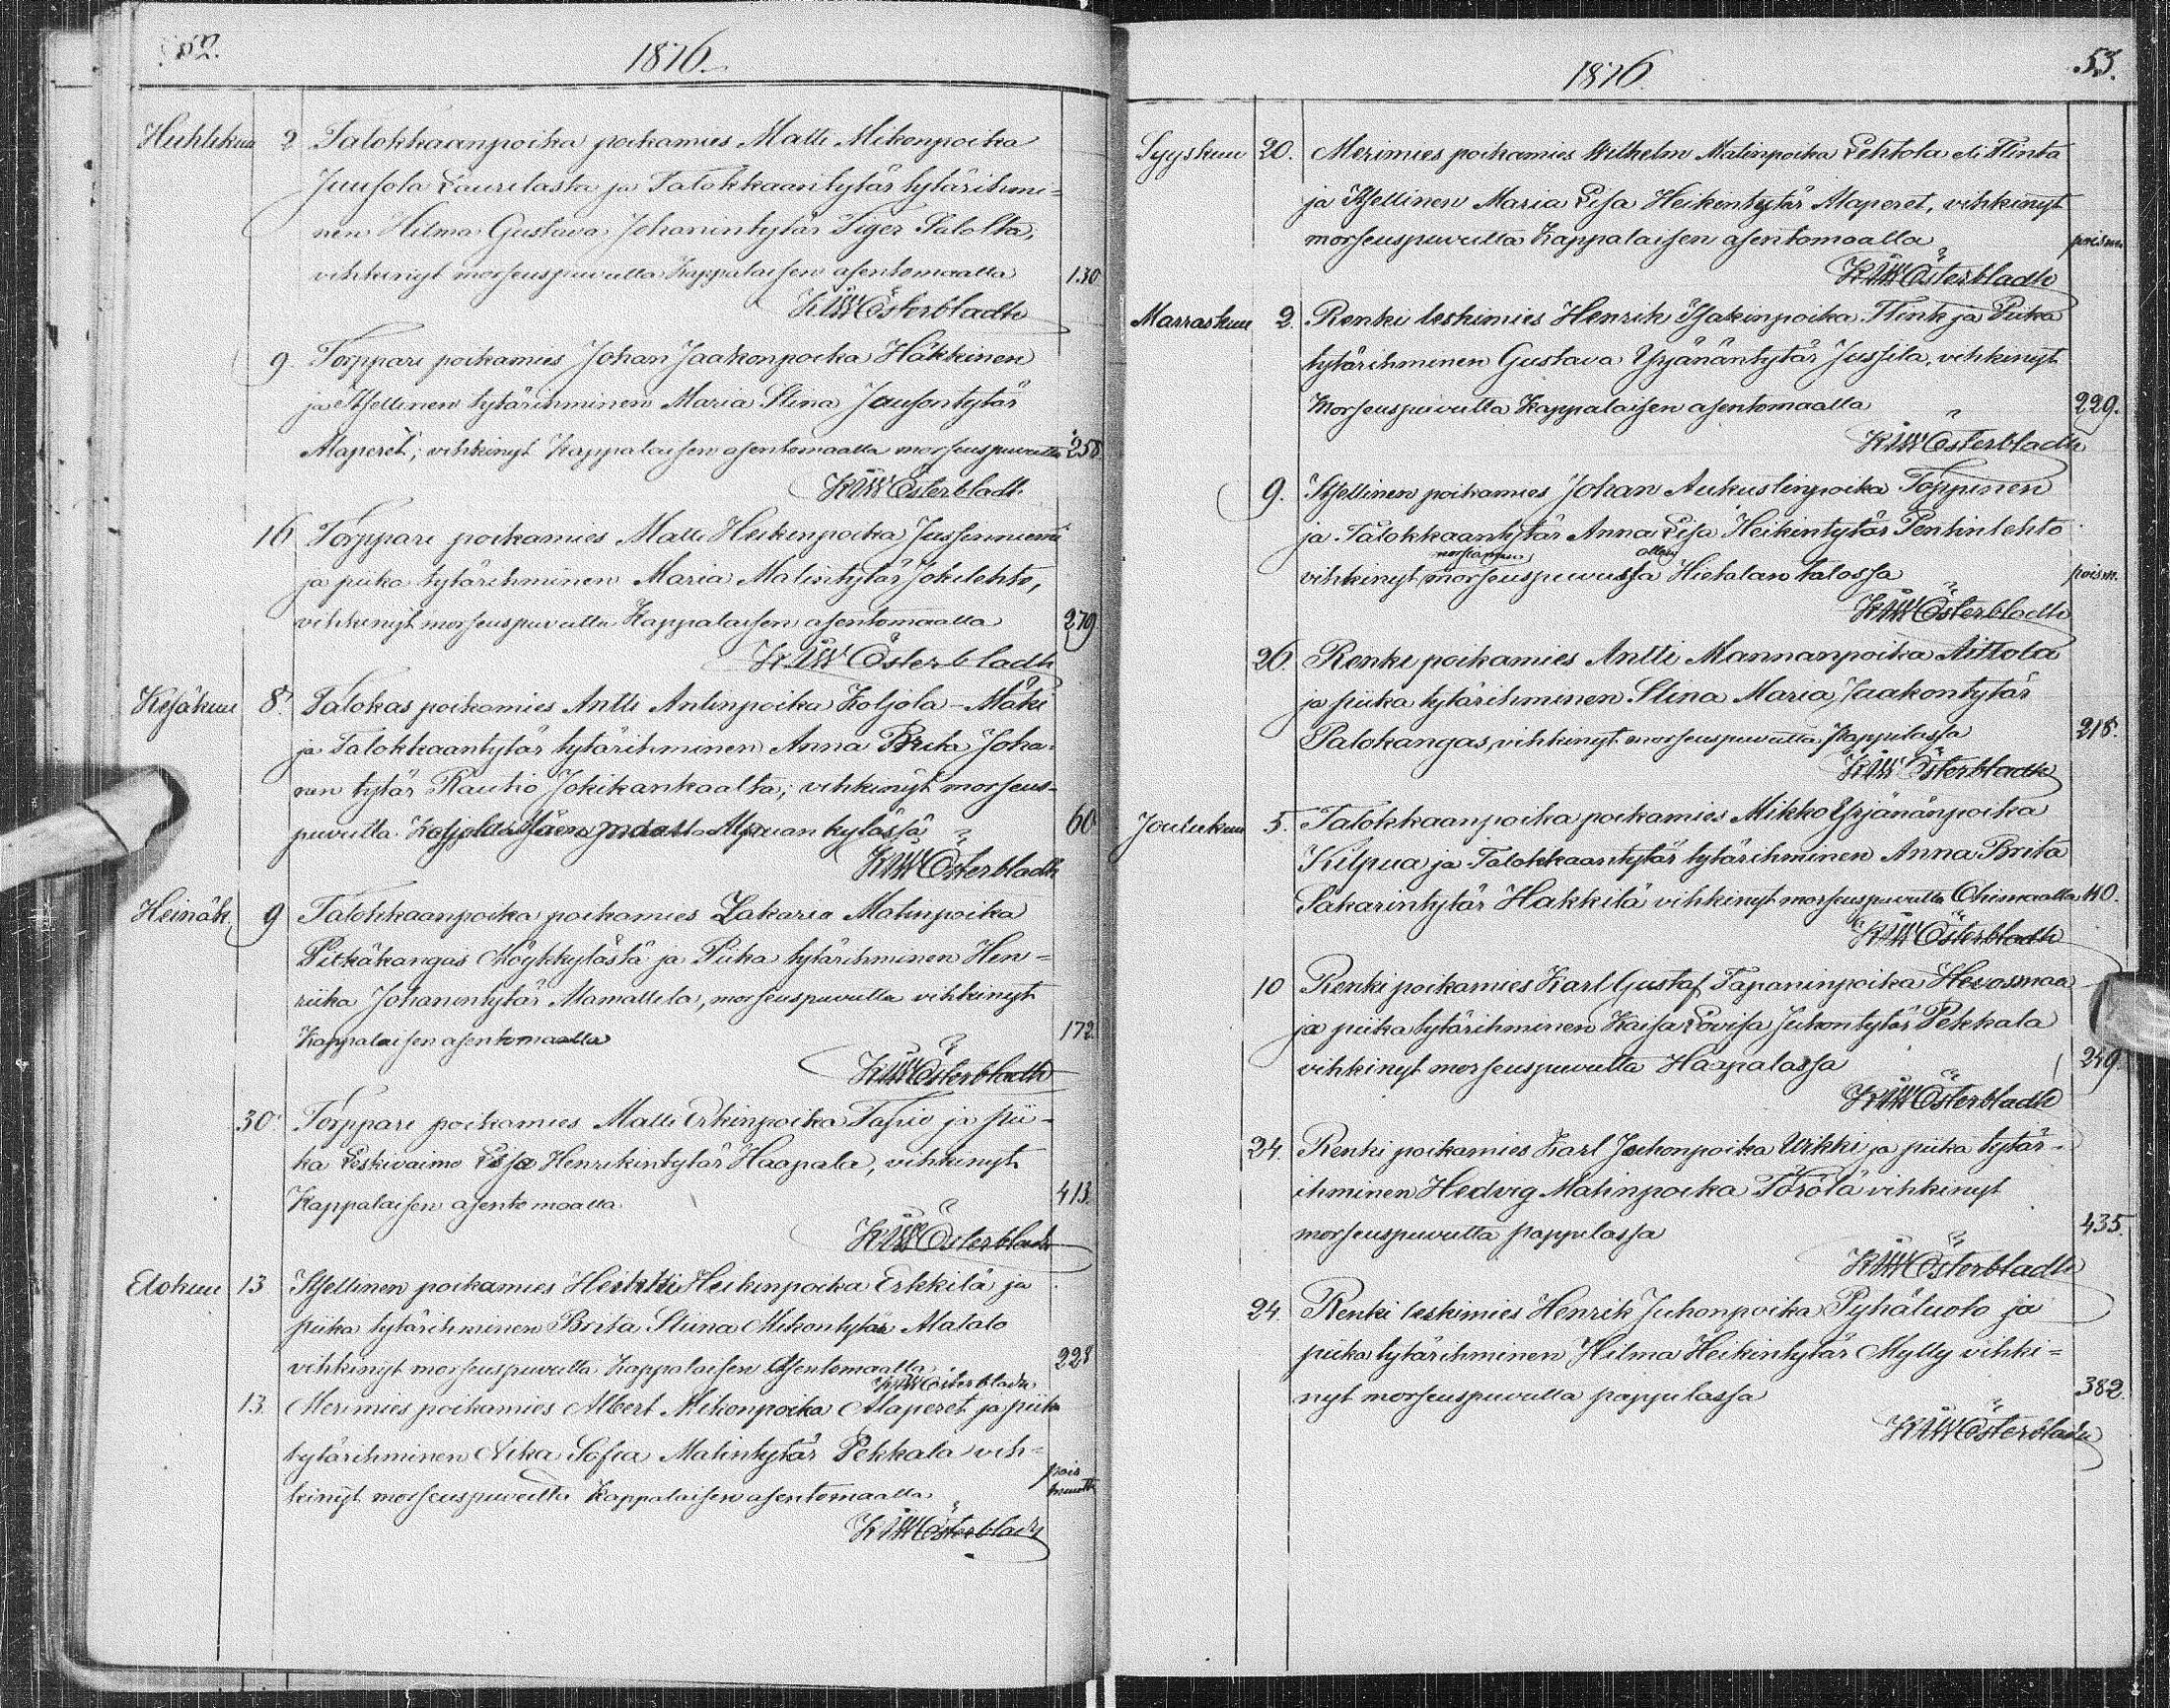 52.
1876.
Huhtikuu 2 Talokkaanpoika poikamies Matti Mikonpoika
Juusola Laurilasta ja Talokkaantytär tytärihmi-
nen Hilma Gustava Johanintytär Tiger Palolta,
vihkinyt morseuspuvutta Kappalaisen asentomaalla 130
KWW Österbladh
9. Torppari poikamies Johan Jaakonpoika Häkkinen
ja Itsellinen tytärihminen Maria Stina
Alaperet, vihkinyt Kappalaisen asentomaalla morseuspuvutta 258
KWW Österbladh
16 Torppari poikamies Matti Heikinpoika Jussinniemi
ja piika tytärihminen Maria Matintytär Jokilehto,
vihkinyt morseuspuvutta Kappalaisen asentomaalla 279
KWW Österbladh
Kesäkuu 8. Talokas poikamies Antti Antinpoika Koljola-Mäki
ja Talokkaantytär tytärihminen Anna Brita Joha-
nin tytär Rautio Jokikankaalta, vihkinyt morseus-
puvutta kylässä 60
KWW Österbladh
Heinäk. 9 Talokkaanpoika poikamies Zakaria Matinpoika
Pitkäkangas Möykkylästä ja Piika tytärihminen Hen-
riika Johanintytär Alamattila, morseuspuvutta vihkinyt
Kappalaisen asentomaalla 172
KWW Österbladh
30. Torppari poikamies Matti Erkinpoika Tapio ja pii-
ka Leskivaimo Lisa Henrikintytär Haapala, vihkinyt
Kappalaisen asentomaalla. 413.
KWW Österbladh
Elokuu 13 Itsellinen poikamies Heikki Heikinpoika Erkkilä ja
piika tytärihminen Brita Stiina Mikontytär Alatalo
vihkinyt morseuspuvutta Kappalaisen Asentomaalla 228
KWW Österbladh
13. Merimies poikamies Albert Mikonpoika Alaperet ja piika
tytärihminen Sofia Matintytär Pekkala vih-
kinyt morseuspuvutta Kappalaisen asentomaalla. pois muutt.
KWW Österbladh
1876.
53.
Syyskuu 20. Merimies poikamies Wilhelm Matinpoika Lehtola eli Flinta
ja Itsellinen Maria Lisa Heikintytär Alaperet, vihkinyt
morseuspuvutta Kappalaisen asentomaalla poism.
KWW Österbladh
Marraskuu 2. Renki leskimies Henrik Isakinpoika Flink ja Piika
tytärihminen Gustava Yrjänäntytär Jussila, vihkinyt
Morseuspuvutta Kappalaisen asentomaalla 229.
KWW Österbladh
9. Itsellinen poikamies Johan Aukustinpoika Toppinen
ja Talokkaantytär Anna Lisa Heikintytär Pentinlehto
morsiamen ollen
vihkinyt morseuspuvussa Hietalan talossa poism.
KWW Österbladh
26. Renki poikamies Antti Mannanpoika Aittola
ja piika tytärihminen Stina Maria Jaakontytär
Palokangas, vihkinyt morseuspuvutta Pappilassa 218.
KWW Österbladh
Joulukuu 5. Talokkaanpoika poikamies Mikko Yrjänänpoika
Kilpua ja Talokkaantytär tytärihminen Anna Brita
Sakarintytär Hakkilä vihkinyt morseuspuvutta Ohimaalla 40.
KWW Österbladh
10 Renki poikamies Karl Gustaf Tapaninpoika Hevosmaa
ja piika tytärihminen Kaisa Lovisa Juhontytär Pekkala
vihkinyt morseuspuvutta Haapalassa 249
KWW Österbladh
24. Renki poikamies Karl Juhonpoika Urkki ja piika tytär-
ihminen Hedvig Matinpoika Törölä vihkinyt
morseuspuvutta pappilassa 435.
KWW Österbladh
24. Renki leskimies Henrik Juhonpoika Pyhäluoto ja
piika tytärihminen Hilma Heikintytär Mylly vihki-
nyt morseuspuvutta pappilassa 382.
KWW Österbladh